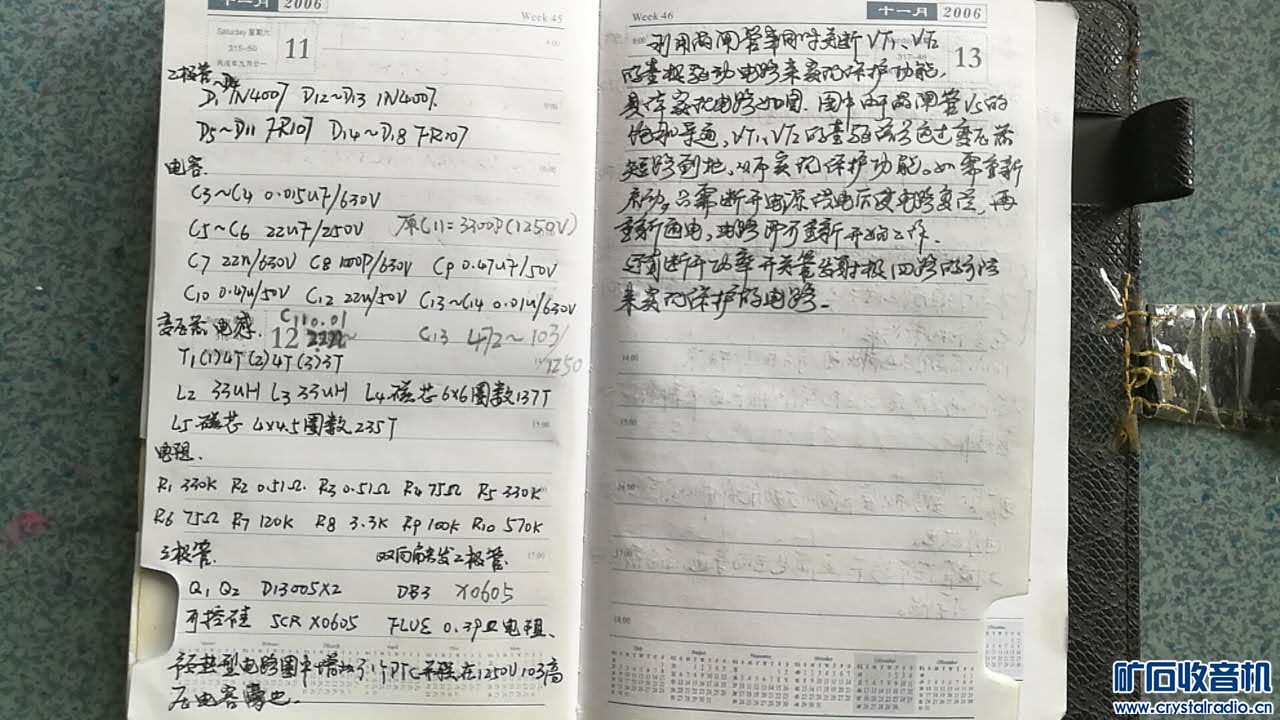 十一月 2006
Week 45
Saturday 星期六
315-50
丙戌年九月廿一
11
二极管
D1~D4 1N4007 D12~D13 1N4007.
D5~D11 FR107 D14~D18 FR107
电容.
C3~C4 0.015uf/630V
C5~C6 22uf/250V 原C11=3300P(1250V)
C7 22n/630V C8 100P/630V C9 0.47uf/50V
C10 0.47u/50V C12 22u/50V C13~C14 0.01u/630V
变压器 电感. C11 0.01
12 C13 472~103/
1250
T1(1)4T(2)4T(3)3T
L2 33uH L3 33uH L4 磁芯 6x6 圈数137T
L5 磁芯 4x4.5 圈数 235T
电阻.
R1 330K R2 0.51Ω R3 0.51Ω R4 75Ω R5 330K
R6 75Ω R7 120K R8 3.3K R9 100K R10 570K
三极管. 双向触发二极管.
Q1 Q2 D13005X2 DB3 X0605
可控硅 SCR X0605 FLUE 0.39Ω电阻、
电路图中增加了1个PTC 并联在1250V103高
压电容旁也.
Week 46
十一月 2006
317-48
13
利用可控硅管来同时关断VT1、VT2
的基极驱动电路来实现保护功能,
具体实现电路如图. 图中由于可控硅管VS的
饱和导通, VT1、VT2的基极信号通过变压器
短路到地, 从而实现保护功能。如需重新
启动, 只需断开电源供电后使电路复位, 再
重新通电, 电路即可重新开始工作.
还有断开功率开关管发射极回路的方法
来实现保护的电路.
矿石收音机
www.crystalradio.cn